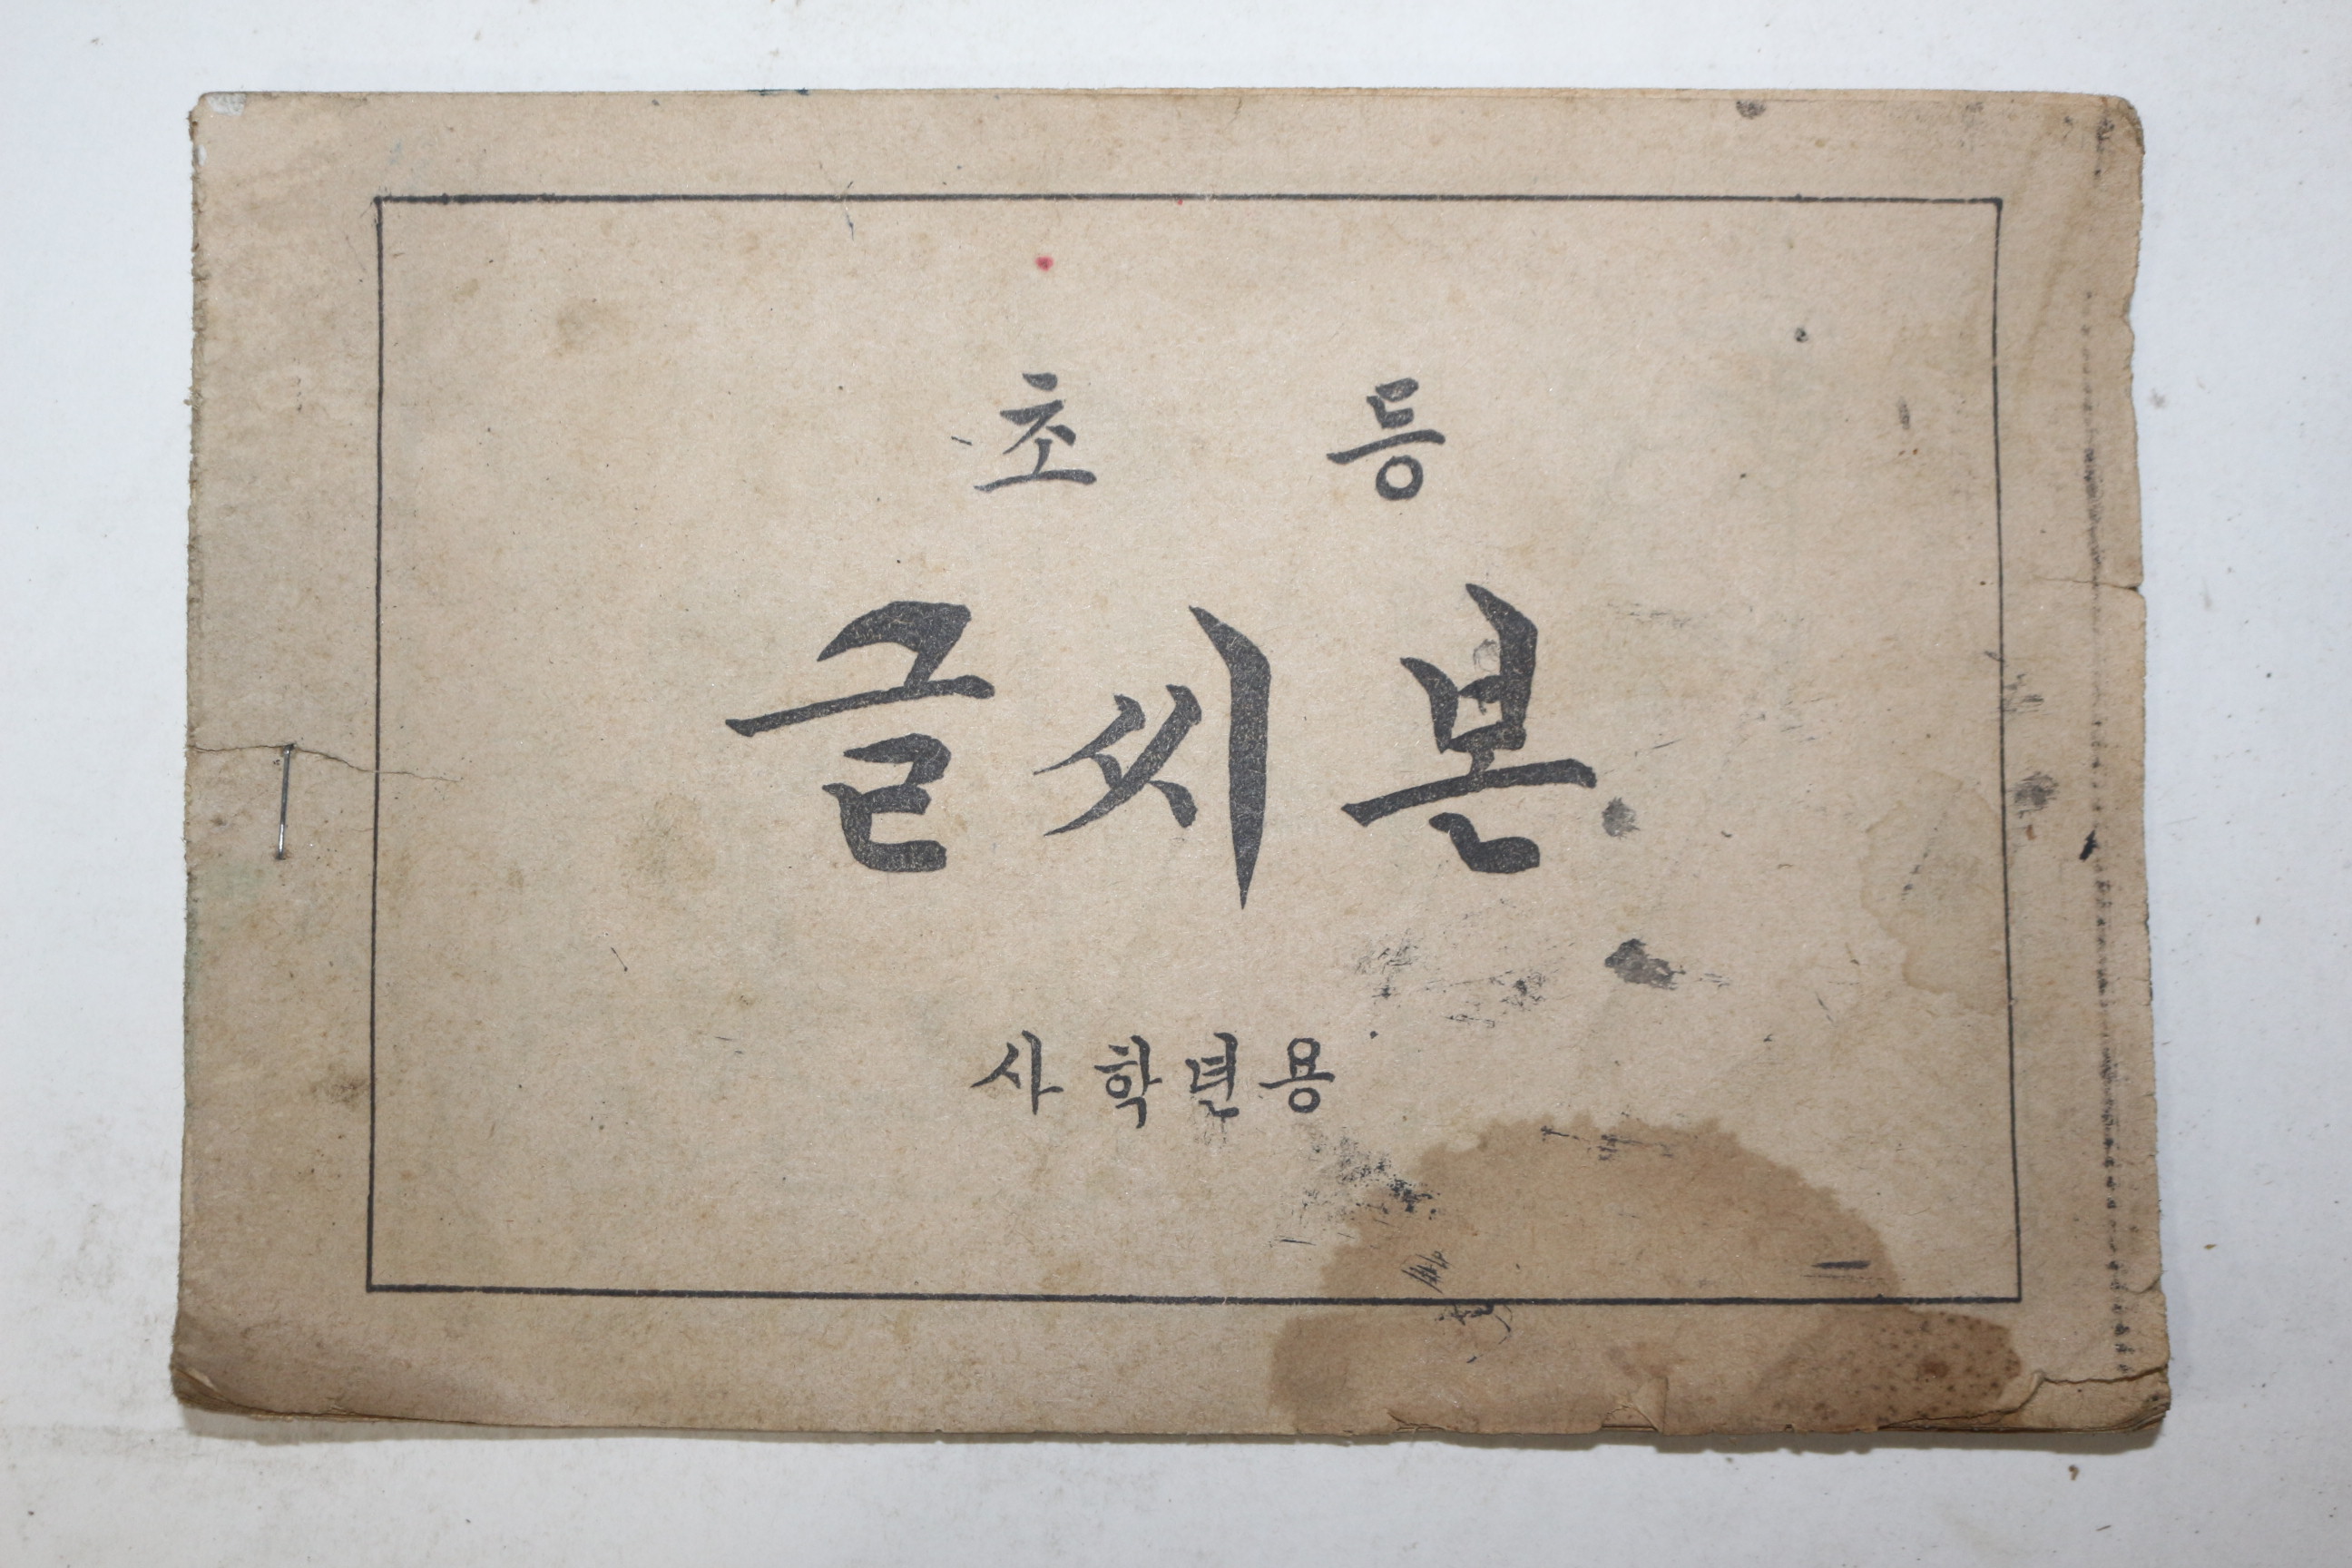 초 등
글씨본
사학년용